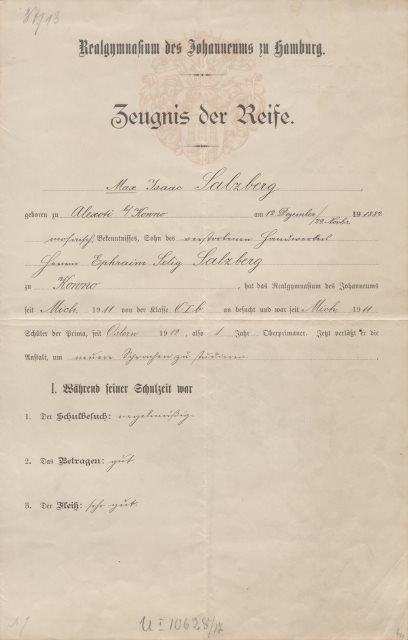 Realgymnasium des Johanneums zu Hamburg.
Zeugnis der Reife.
Max Isaac Salzberg
geboren zu Alexoti b/Kowno am 12 Dezember/29 Novbr. 1882
mosaisch. Bekenntnisses, Sohn des verstorbenen Handwerkers
Herrn Ephraim Selig Salzberg
zu Kowno, hat das Realgymnasium des Johanneums
seit Mich. 1911 von der Klasse O I b an besucht und war seit Mich 1911
Schüler der Prima, seit Ostern 1912, also 1 Jahr Oberprimaner. Jetzt verläßt er die
Anstalt, um neuere Sprachen zu studieren
I. Während seiner Schulzeit war
1. Der Schulbesuch: regelmäßig
2. Das Betragen: gut
3. Der Fleiß: sehr gut
U I 10628/17